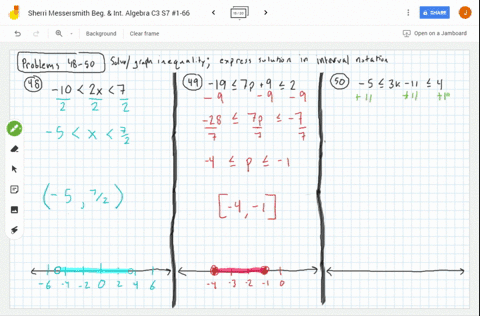 Sherri Messersmith Beg. & Int. Algebra C3 S7 #1-66
SHARE
Background
Clear frame
Open on a Jamboard
Problems 48-50 Solve/graph inequality; express solution in interval notation
48
-10 < 2x < 7
2 2 2
-5 < x < 7/2
(-5, 7/2)
-6 -4 -2 0 2 4 6
49
-19 ≤ 7p + 9 ≤ 2
-9 -9 -9
-28/7 ≤ 7p/7 ≤ -7/7
-4 ≤ p ≤ -1
[-4, -1]
-4 -3 -2 -1 0
50
-5 ≤ 3k - 11 ≤ 4
+11 +11 +11